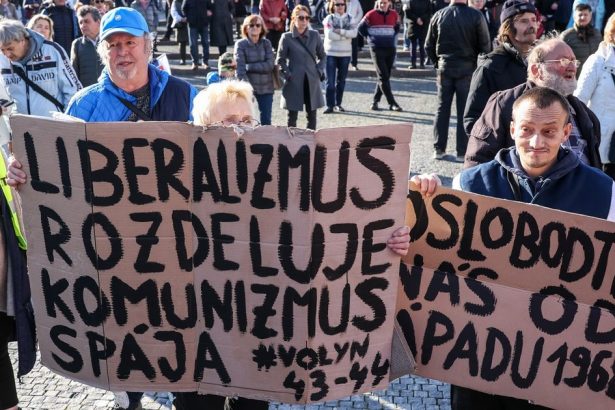 LIBERALIZMUS
ROZDELUJE
KOMUNIZMUS
SPÁJA #VOLYN
43-44
OSLOBODT
NÁS OD
ÁPADU 196
DAVID